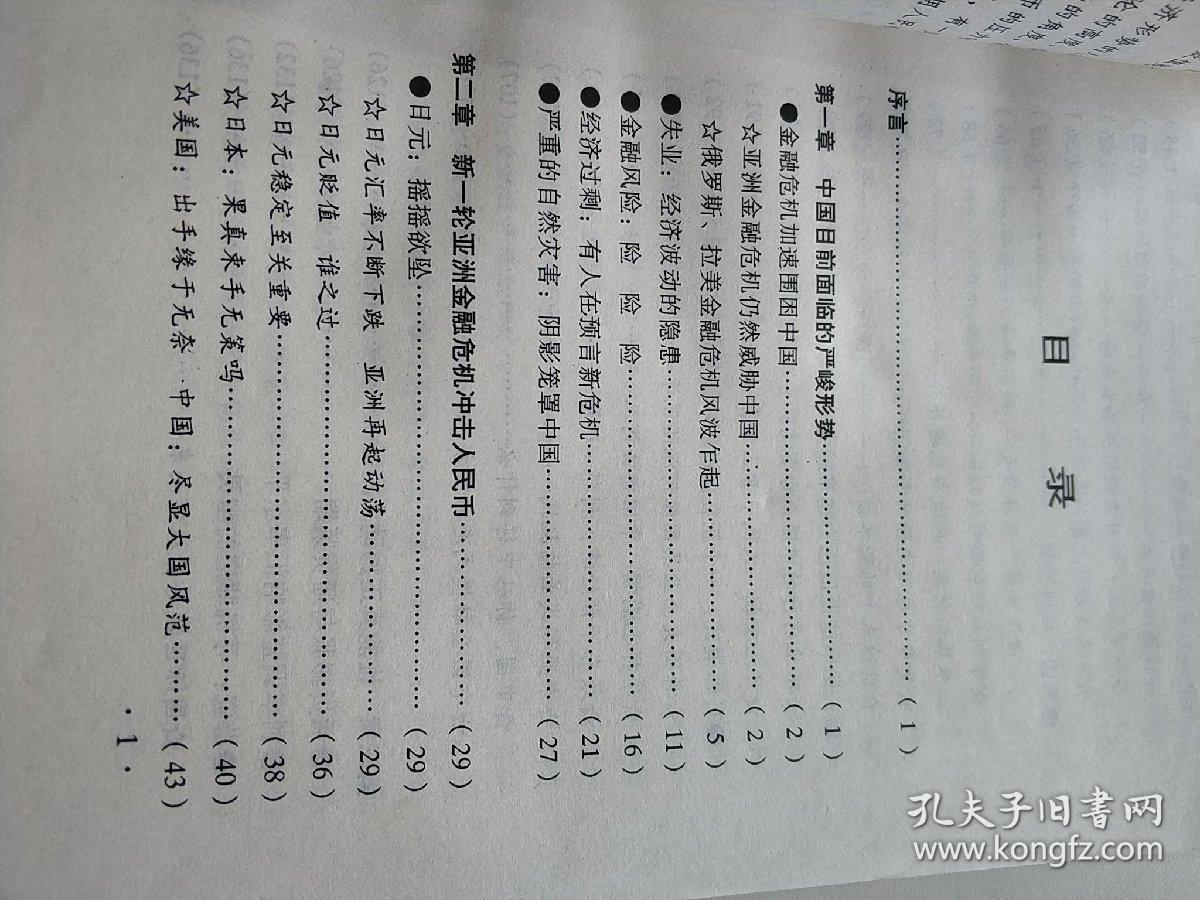 目 录
序言……………………………………………（1）
第一章 中国目前面临的严峻形势……………………（1）
●金融危机加速围困中国……………………………（2）
☆亚洲金融危机仍然威胁中国………………………（2）
☆俄罗斯、拉美金融危机风波乍起…………………（5）
●失业：经济波动的隐患……………………………（11）
●金融风险：险 险 险……………………………（16）
●经济过剩：有人在预言新危机……………………（21）
●严重的自然灾害：阴影笼罩中国…………………（27）
第二章 新一轮亚洲金融危机冲击人民币……………（29）
●日元：摇摇欲坠……………………………………（29）
☆日元汇率不断下跌 亚洲再起动荡………………（29）
☆日元贬值 谁之过…………………………………（36）
☆日元稳定至关重要…………………………………（38）
☆日本：果真束手无策吗……………………………（40）
☆美国：出手缘于无奈 中国：尽显大国风范………（43）
·1·
孔夫子旧书网
www.kongfz.com